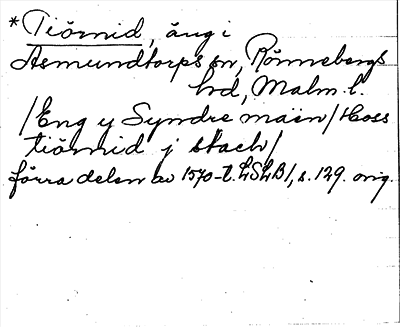 *Tiörnid, äng i
Asmundtorps sn, Rönnebergs
hd, Malm. l.
/Eng y Syndre maen/ Hoss
tiörnid j stach/
förra delen av 1570-t. LSLB/, s. 129. orig.